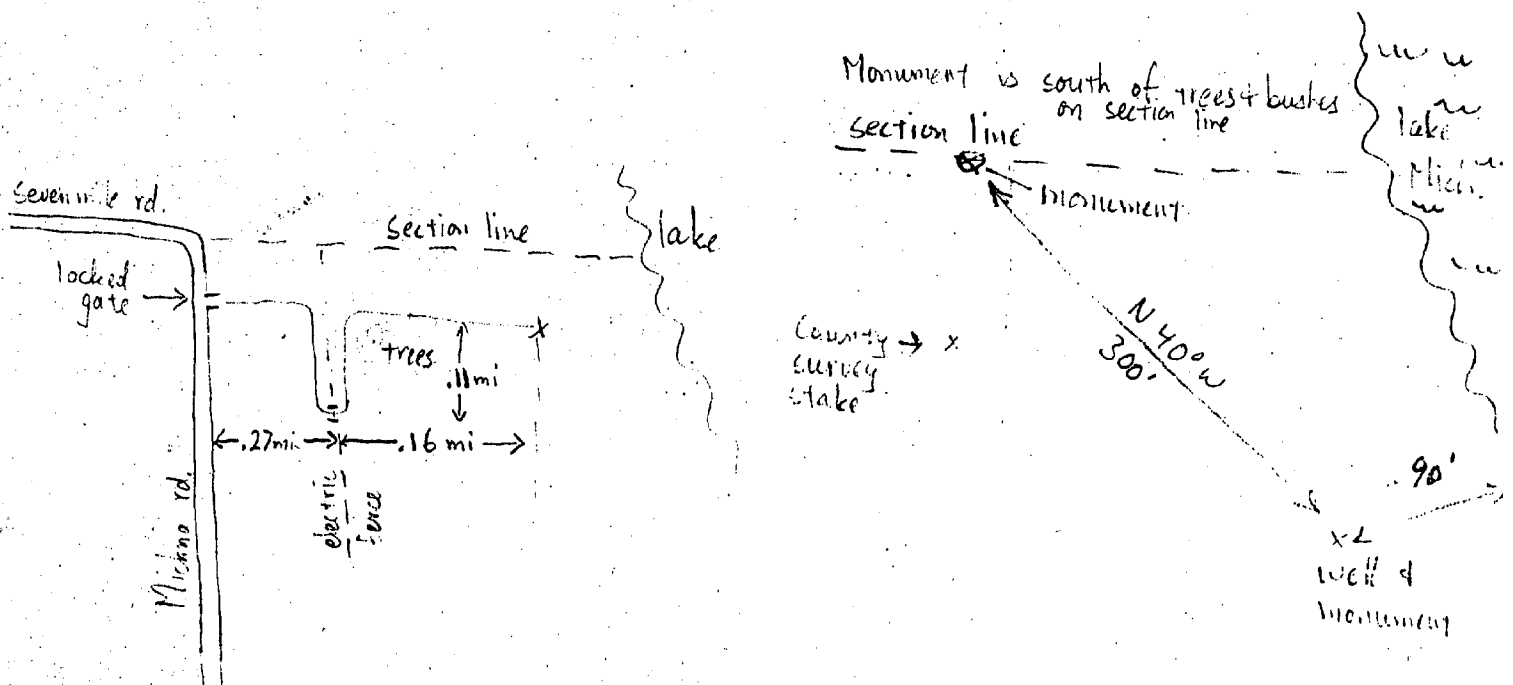 Sevenmile rd.
section line
lake
locked
gate
trees
.11mi
.27mi
.16 mi
electric
fence
rd.
Monument is south of trees & bushes
on section line
section line
lake
Mich.
monument
County
survey
stake
x
N 40° W
300'
90'
x
well &
monument